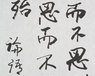 而不思
思而不
殆
論語